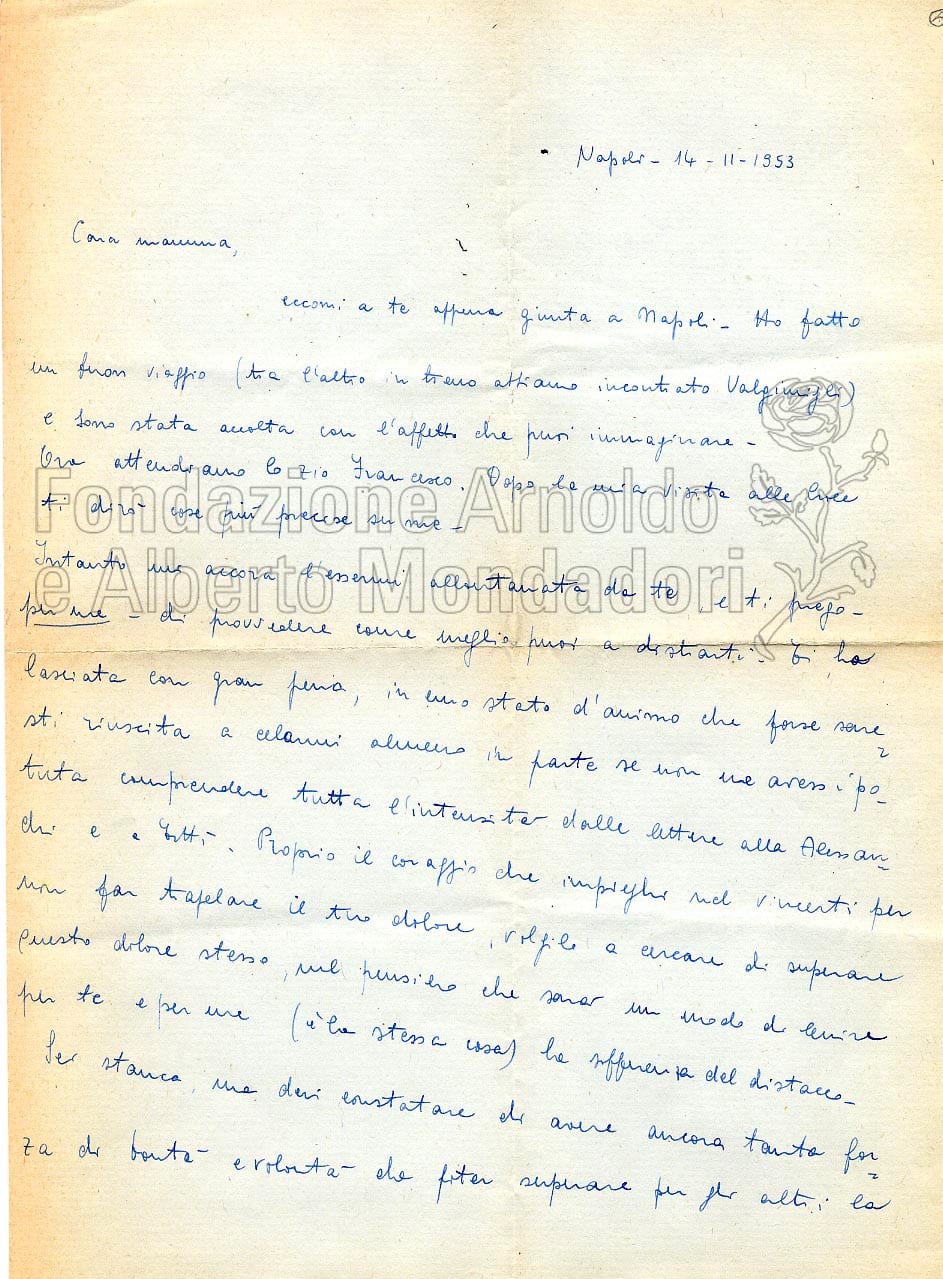 Napoli - 14 - 11 - 1953
Cara mamma,
eccomi a te appena giunta a Napoli - Ho fatto
un buon viaggio (tra l'altro in treno abbiamo incontrato Valgimigli)
e sono stata accolta con l'affetto che puoi immaginare -
Ora attendiamo lo zio Francesco. Dopo la mia visita alle
ti dirò cose più precise su me -
Fondazione Arnoldo
e Alberto Mondadori
Intanto mi accora l'essermi allontanata da te, e ti prego -
per me - di provvedere come meglio puoi a distrarti. Ti ho
lasciata con gran pena, in uno stato d'animo che forse sare=
sti riuscita a celarmi almeno in parte se non ne avessi po-
tuta comprendere tutta l'intensità dalle lettere alla Alessan=
dri e a Titti. Proprio il coraggio che impieghi nel vincerti per
non far trapelare il tuo dolore, volgilo a cercare di superare
questo dolore stesso, nel pensiero che sarà un modo di lenire
per te e per me (è la stessa cosa) la sofferenza del distacco -
Sei stanca, ma devi constatare di avere ancora tanta for=
za di bontà e volontà da poter superare per gli altri la